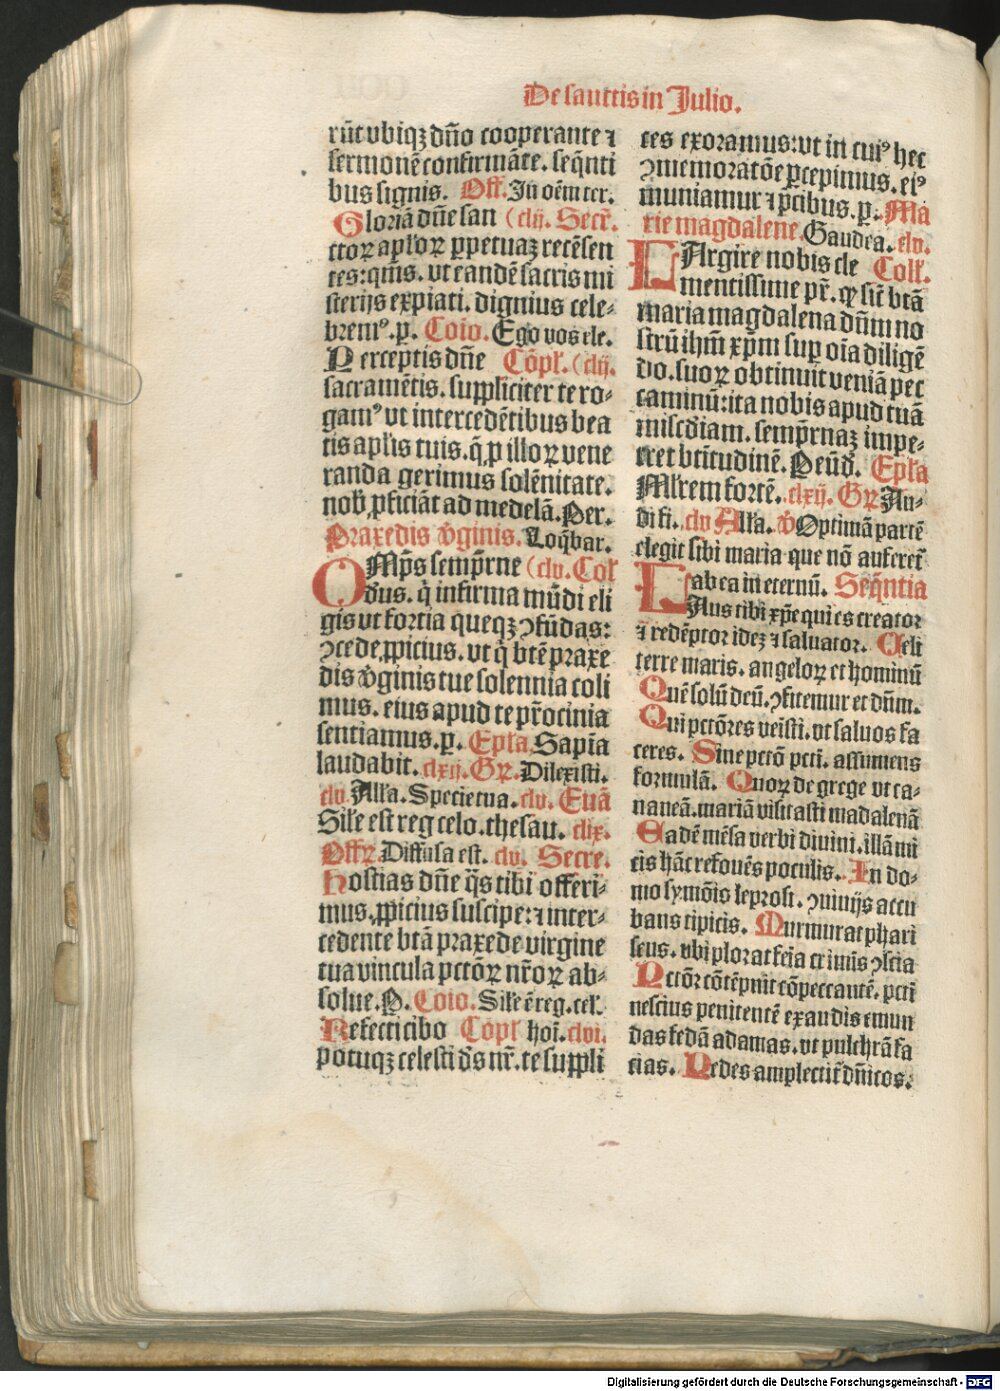 De sanctis in Julio.
rūt vbiqꝫ dn̄o cooperante ⁊
sermonē confirmāte. seq̄nti
bus signis. Off. In oēm ter.
Gloriā dn̄e san (clij. Secr̄.
ctoꝝ apl̓oꝝ ꝑpetuaꝫ recēsen
tes: qm̄s. vt eandē sacris mi
sterijs expiati. dignius cele-
bremꝰ. p. Coīo. Ego vos ele.
Perceptis dn̄e Cōpl̓. (clij.
sacramētis. suppliciter te ro-
gamꝰ vt intercedētibus bea
tis apl̓is tuis. q̄ ꝓ illoꝝ vene
randa gerimus solēnitate.
nob̓ ꝓficiāt ad medelā. Per.
Praxedis v̓ginis. Loq̄bar.
OMp̄s semp̄rne (clv. Col̓
deus. q̓ infirma mūdi eli
gis vt fortia queqꝫ ꝯfūdas:
ꝯcede ꝓpicius. vt q̓ btē praxe
dis v̓ginis tue solennia coli
mus. eius apud te pr̄ocinia
sentiamus. p. Epl̓a. Sapīa
laudabit. clxij. Gꝝ. Dilexisti.
clv. All̓a. Specie tua. clv. Euā
Sil̓e est reg celo. thesau. clix.
Offꝝ Diffusa est. clv. Secre.
Hostias dn̄e q̄s tibi offeri-
mus. ꝓpicius suscipe: ⁊ inter-
cedente btā praxede virgine
tua vincula pctōꝝ nr̄oꝝ ab-
solue. P. Coīo. Sil̓e ē reg. cel̓.
Refecti cibo Cōpl̓ hoī. clvi.
potuqꝫ celesti ds̄ nr̄. te suppli
ces exoramus: vt in cuiꝰ hec
ꝯmemoratōe ꝑcepimus. eiꝰ
muniamur ⁊ p̄cibus. p. Ma
rie magdalene. Gaudea. clv.
LArgire nobis cle Coll̓.
mentissime pr̄. qꝫ sic̄ btā
maria magdalena dn̄m no
strū ih̄m xp̄m suꝑ oīa diligē
do. suoꝝ obtinuit veniā pec
caminū: ita nobis apud tuā
mīscd̓iam. semp̄rnaꝫ impe-
tret btītudinē. Peūd̓. Epl̓a
Ml̓rem fortē. clxij. Gꝝ Au-
di fi. clv All̓a. v̓ Optimā partē
elegit sibi maria que nō auferet̓
ab ea in eternū. Seq̄ntia
LAus tibi xp̄e qui es creator
⁊ redēptor idēꝫ ⁊ saluator. Celi
terre maris. angeloꝝ et hominū
Quē solū deū. ꝯfitemur et dn̄m.
Qui pctōres veisti. vt saluos fa
ceres. Sine pctō pctī. assumens
formulā. Quoꝝ de grege vt ca-
naneā. mariā visitasti madalenā
Eadē mēsa verbi diuini. illā mi
cis hāc refouēs poculis. In do-
mo symōis leprosi. ꝯuiuijs accu
bans tipicis. Murmurat phari
seus. vbi plorat feīa crimīs ꝯscia
Pctōꝛ cōtēpnit cōpeccantē. pctī
nescius penitentē exaudis emun
das fedā adamas. vt pulchrā fa
cias. Pedes amplectit̓ dn̄icos.
Digitalisierung gefördert durch die Deutsche Forschungsgemeinschaft - DFG